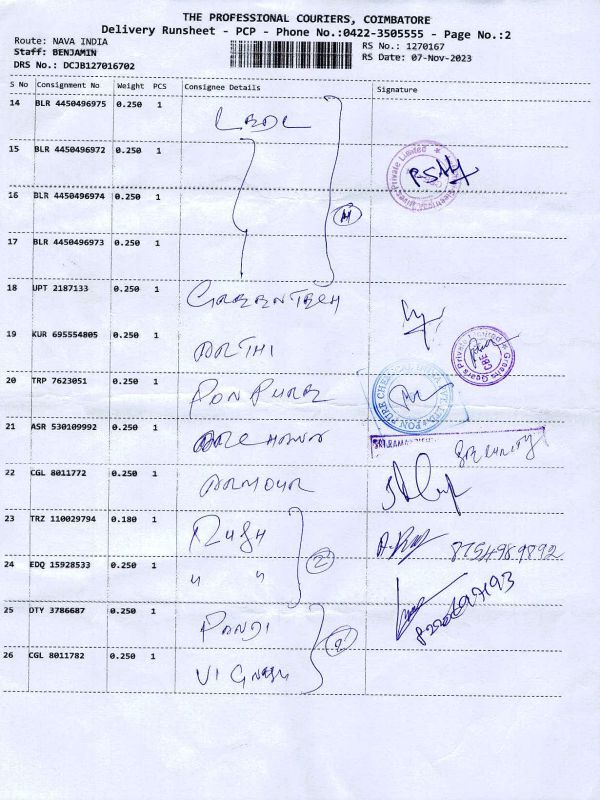 THE PROFESSIONAL COURIERS, COIMBATORE
Delivery Runsheet - PCP - Phone No.:0422-3505555 - Page No.:2
Route: NAVA INDIA
Staff: BENJAMIN
DRS No.: DCJB127016702
RS No.: 1270167
RS Date: 07-Nov-2023
S No Consignment No Weight PCS Consignee Details Signature
14 BLR 4450496975 0.250 1
15 BLR 4450496972 0.250 1
16 BLR 4450496974 0.250 1
17 BLR 4450496973 0.250 1
4
18 UPT 2187133 0.250 1 GREENTECH
19 KUR 695554805 0.250 1 ARTHI
20 TRP 7623051 0.250 1 PONPURE
21 ASR 530109992 0.250 1
SECURITY
22 CGL 8011772 0.250 1 ARMOUR
23 TRZ 110029794 0.180 1 RUSH
8754989892
2
24 EDQ 15928533 0.250 1 " "
25 DTY 3786687 0.250 1 PANDI
2
26 CGL 8011782 0.250 1 VIGNESH